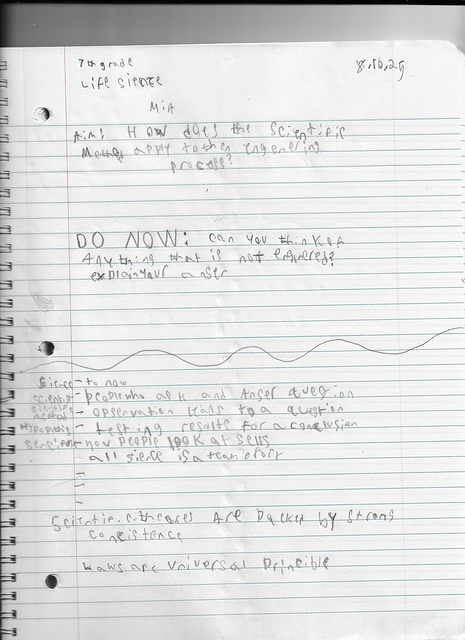 7th grade
8.10.29
Life sience
MiA
Aim: How does the scientific
apply to then engenering
process?
DO NOW: can you think of
Any thing that is not engnered?
explain your anser
Sience - to now
scientist - people who ask and anser question
- observation leads to a question
Hypothesis - testing results for a conclusion
- how people look at
all sience is a team efort
Scientific theores Are backed by strong
consistence
Laws are universal principle